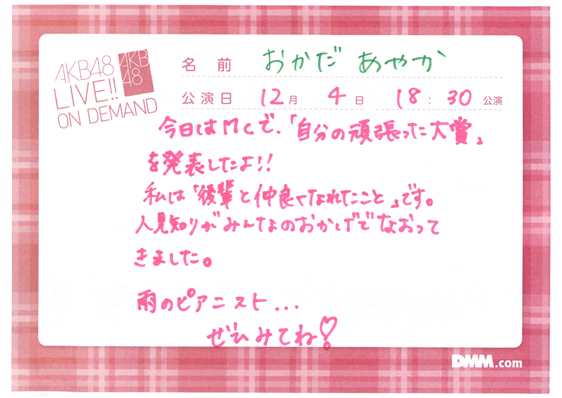 AKB48
LIVE!!
ON DEMAND
AKB
48
名前 おかだ あやか
公演日 12月 4日 18:30公演
今日はMCで、「自分の頑張った大賞」
を発表したよ!!
私は「後輩と仲良くなれたこと」です。
人見知りがみんなのおかげでなおって
きました。
雨のピアニスト...
ぜひみてね♡
DMM.com